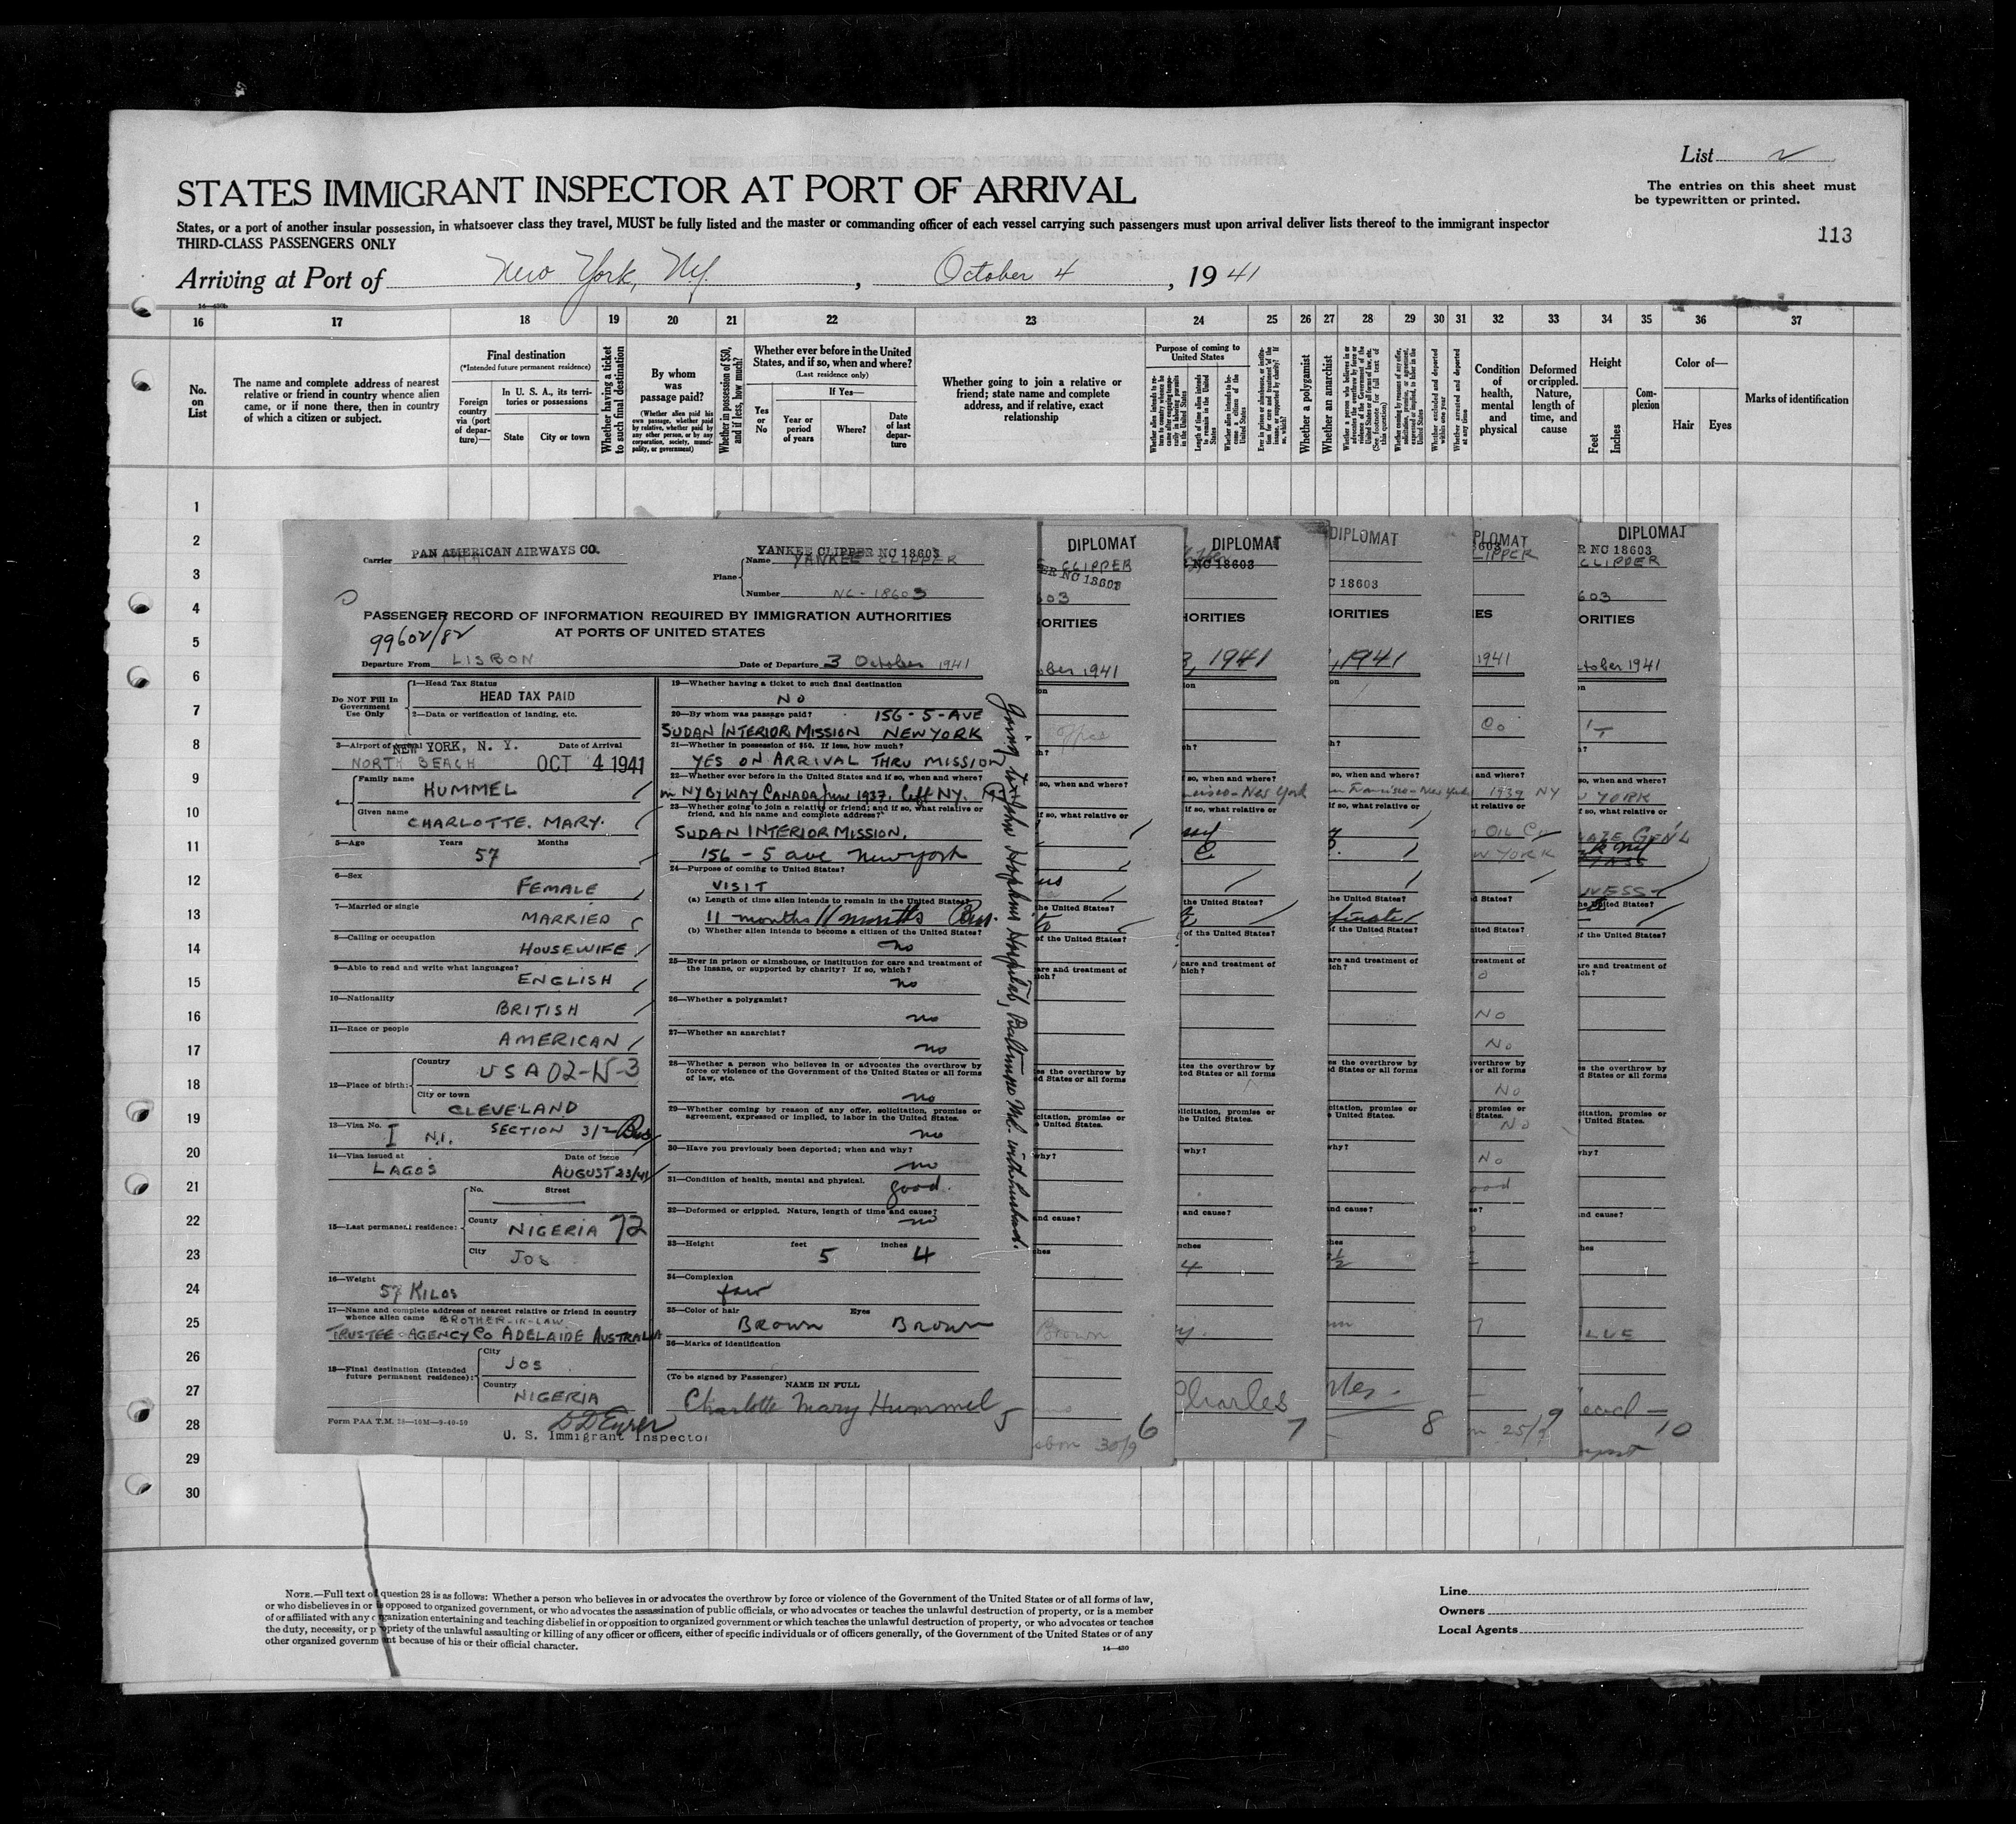 List 2
The entries on this sheet must
be typewritten or printed.
STATES IMMIGRANT INSPECTOR AT PORT OF ARRIVAL
States, or a port of another insular possession, in whatsoever class they travel, MUST be fully listed and the master or commanding officer of each vessel carrying such passengers must upon arrival deliver lists thereof to the immigrant inspector
THIRD-CLASS PASSENGERS ONLY
113
Arriving at Port of New York, N.Y. , October 4 , 1941
16 17 18 19 20 21 22 23 24 25 26 27 28 29 30 31 32 33 34 35 36 37
No. on List
The name and complete address of nearest
relative or friend in country whence alien
came, or if none there, then in country
of which a citizen or subject.
Final destination
(*Intended future permanent residence)
Foreign country via (port of departure)—
In U. S. A., its territories or possessions
State
City or town
Whether having a ticket to such final destination
By whom was passage paid?
(Whether alien paid his own passage, whether paid by relative, whether paid by any other person, or by any corporation, society, municipality, or government)
Whether in possession of $50, and if less, how much?
Whether ever before in the United
States, and if so, when and where?
(Last residence only)
Yes or No
If Yes—
Year or period of years
Where?
Date of last departure
Whether going to join a relative or
friend; state name and complete
address, and if relative, exact
relationship
Purpose of coming to United States
Length of time alien intends to remain in the United States
Whether alien intends to become a citizen of the United States
Whether a polygamist
Whether an anarchist
Whether excluded and deported within one year
Whether arrested and deported at any time
Condition of health, mental and physical
Deformed or crippled. Nature, length of time, and cause
Height
Feet
Inches
Complexion
Color of—
Hair
Eyes
Marks of identification
1
2
3
4
5
6
7
8
9
10
11
12
13
14
15
16
17
18
19
20
21
22
23
24
25
26
27
28
29
30
Carrier PAN AMERICAN AIRWAYS CO.
YANKEE CLIPPER NC 18603
Plane Name YANKEE CLIPPER
Number NC-18603
PASSENGER RECORD OF INFORMATION REQUIRED BY IMMIGRATION AUTHORITIES
AT PORTS OF UNITED STATES
99602/82
Departure From LISBON Date of Departure 3 October 1941
Do NOT Fill In Government Use Only
1—Head Tax Status
HEAD TAX PAID
2—Data or verification of landing, etc.
3—Airport of Arrival NEW YORK, N. Y. Date of Arrival
NORTH BEACH OCT 4 1941
4— Family name
HUMMEL
Given name
CHARLOTTE. MARY.
5—Age Years Months
57
6—Sex
FEMALE
7—Married or single
MARRIED
8—Calling or occupation
HOUSEWIFE
9—Able to read and write what languages?
ENGLISH
10—Nationality
BRITISH
11—Race or people
AMERICAN
12—Place of birth: Country
USA 02-N-3
City or town
CLEVELAND
13—Visa No. SECTION 3/2
I N.I.
14—Visa issued at Date of issue
LAGOS AUGUST 23/41
15—Last permanent residence: No. Street
County NIGERIA 72
City JOS
16—Weight
57 KILOS
17—Name and complete address of nearest relative or friend in country
whence alien came BROTHER-IN-LAW
TRUSTEE AGENCY CO ADELAIDE AUSTRALIA
18—Final destination (Intended future permanent residence): City
JOS
Country
NIGERIA
Form PAA T.M. 28—10M—9-40-50
U. S. Immigrant Inspector
19—Whether having a ticket to such final destination
NO
20—By whom was passage paid? 156-5-AVE
SUDAN INTERIOR MISSION NEW YORK
21—Whether in possession of $50. If less, how much?
YES ON ARRIVAL THRU MISSION
22—Whether ever before in the United States and if so, when and where?
in NY BY WAY CANADA June 1937. Left NY.
23—Whether going to join a relative or friend; and if so, what relative or
friend, and his name and complete address?
SUDAN INTERIOR MISSION,
156 - 5 ave New york
24—Purpose of coming to United States?
VISIT
(a) Length of time alien intends to remain in the United States
11 months 11 months
(b) Whether alien intends to become a citizen of the United States?
no
25—Ever in prison or almshouse, or institution for care and treatment of
the insane, or supported by charity? If so, which?
no
26—Whether a polygamist?
no
27—Whether an anarchist?
no
28—Whether a person who believes in or advocates the overthrow by
force or violence of the Government of the United States or all forms
of law, etc.
no
29—Whether coming by reason of any offer, solicitation, promise or
agreement, expressed or implied, to labor in the United States.
no
30—Have you previously been deported; when and why?
no
31—Condition of health, mental and physical.
good.
32—Deformed or crippled. Nature, length of time and cause?
no
33—Height feet inches
5 4
34—Complexion
fair
35—Color of hair Eyes
BROWN BROWN
36—Marks of identification
(To be signed by Passenger)
NAME IN FULL
Charlotte Mary Hummel 5
Going to John Hopkins Hospital, Baltimore Md. with husband.
DIPLOMAT
CLIPPER
ORITIES
ober 1941
Brown
30/9 6
DIPLOMAT
NC 18603
HORITIES
3, 1941
cisco-New York
4
Charles
7
DIPLOMAT
C 18603
IORITIES
, 1941
n Francisco-New York
8
PLOMAT
CLIPPER
IES
1941
Co
1939 NY
OIL Co
W YORK
NO
No
No
No
No
ood
25/9 9
DIPLOMAT
R NC 18603
CLIPPER
603
ORITIES
ctober 1941
YORK
NATE GEN'L
LUE
10
NOTE.—Full text of question 28 is as follows: Whether a person who believes in or advocates the overthrow by force or violence of the Government of the United States or of all forms of law,
or who disbelieves in or is opposed to organized government, or who advocates the assassination of public officials, or who advocates or teaches the unlawful destruction of property, or is a member
of or affiliated with any organization entertaining and teaching disbelief in or opposition to organized government or which teaches the unlawful destruction of property, or who advocates or teaches
the duty, necessity, or propriety of the unlawful assaulting or killing of any officer or officers, either of specific individuals or of officers generally, of the Government of the United States or of any
other organized government because of his or their official character.
14—430
Line
Owners
Local Agents